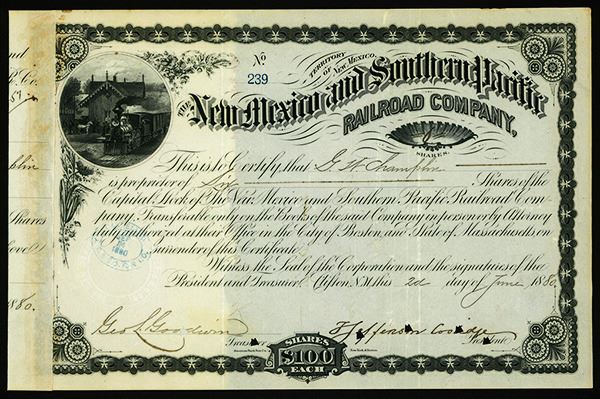 No
239
TERRITORY
OF NEW MEXICO.
THE
New Mexico and Southern Pacific
RAILROAD COMPANY,
SHARES.
This is to Certify, that G. W. Champlin
is proprietor of Shares of the
Capital Stock of The New Mexico and Southern Pacific Railroad Com-
pany, Transferable only on the Books of the said Company in person or by Attorney
duly authorized at their Office in the City of Boston, and State of Massachusetts on
surrender of this Certificate.
Witness the Seal of the Corporation and the signatures of the
President and Treasurer. Clifton, N.M. this 2d day of June 1880.
Geo. L. Goodwin
Treasurer
T Jefferson Coolidge
President
SHARES
$100
EACH
1880
Shares
1880.